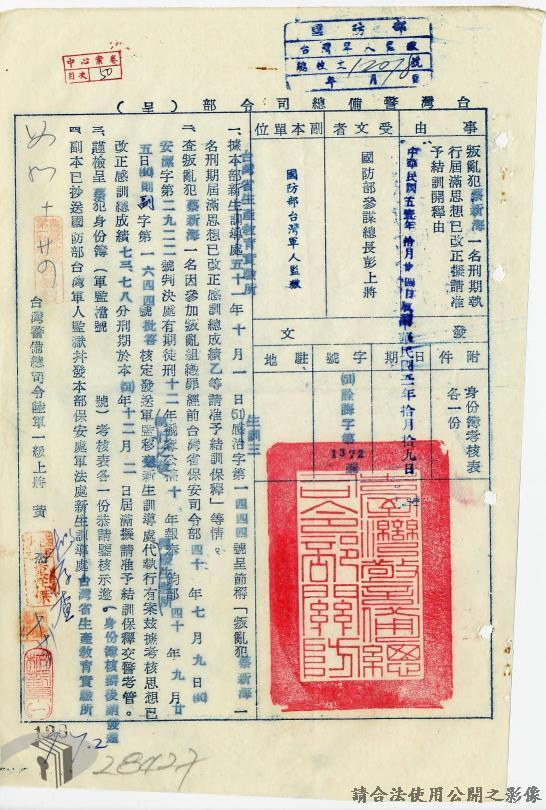 國防部
台灣軍人監獄
總收文12078號
年 月 日
中心案卷
目次 50
台灣警備總司令部(呈)
事由
叛亂犯蔡新海一名刑期執
行屆滿思想已改正擬請准
予結訓開釋由
附件
身份簿考核表
各一份
受文者
國防部參謀總長彭上將
副本單位
國防部台灣軍人監獄
發文
日期
中華民國五一年拾月拾九日
字號
(51)詮誨字第
1372
號
駐地
台灣警備總司令部關防
一、據本部新生訓導處
台灣省生產教育實驗所
五十一年十月一日(51)感浩字第一四四四號呈節稱「叛亂犯蔡新海一
名刑期屆滿思想已改正感訓總成績乙等請准予結訓保釋」等情。
二、查叛亂犯蔡新海一名因參加叛亂組織罪經前台灣省保安司令部四十年七月九日(40)
安潔字第二九二二號判決處有期徒刑十二年
五日(40)則副字第一六四四號批答核定發送軍監移新生訓導處代執行有案茲據考核思想已
改正感訓總成績七三.七八分刑期於本(51)年十二月二日屆滿擬請准予結訓保釋交警考管。
三、謹檢呈蔡犯身份簿(軍監檔號 號)考核表各一份恭請鑒核示遵(身份簿核辦後請發還
四、副本已抄送國防部台灣軍人監獄并發本部保安處軍法處新生訓導處台灣省生產教育實驗所
台灣警備總司令陸軍一級上將黃
28427
請合法使用公開之影像